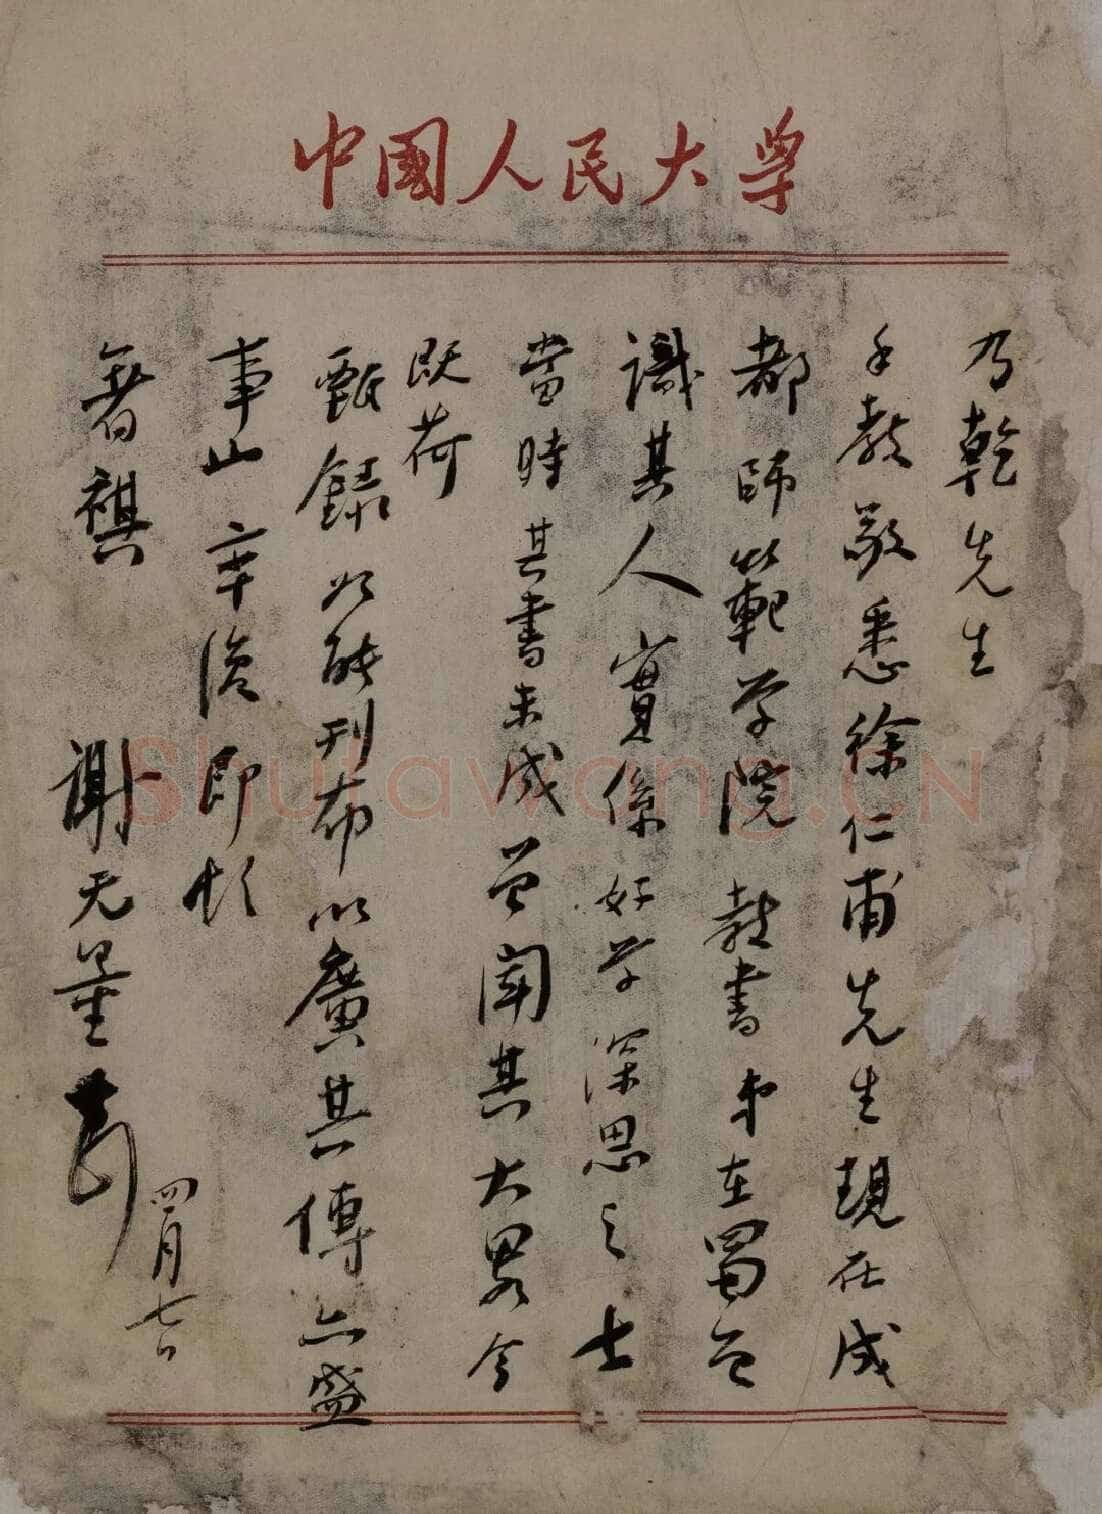 中國人民大學
乃乾先生
手教敬悉徐仁甫先生現在成
都師範学院教書弟在蜀曾
識其人實係好学深思之士
當時其書未成曾聞其大畧今
既荷
甄錄如能刊布以廣其傳亦盛
事也率復即頌
著祺
謝无量
四月七日
Shutawang.CN